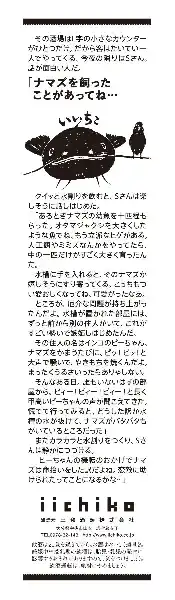 その酒場はL字の小さなカウンター
がひとつだけ。だから客はたいてい一人
でやってくる。今夜の隣りはSさん。
話が面白い人だ。
「ナマズを飼った
ことがあってね…
いいちこ
クイッと水割りを飲むと、Sさんは楽
しそうに話しはじめた。
「あるときナマズの幼魚を十匹程も
らった。オタマジャクシを大きくした
ような魚でね、もう立派なヒゲがある。
人工餌やミミズなんかをやってたら、
中の一匹だけがすごく大きく育ったん
だ。
水槽に手を入れると、そのナマズが
嬉しそうにすり寄ってくる。こっちもつ
い愛おしくなってね。可愛がったなあ。
ところが、厄介な問題が持ち上がっ
たんだよ。水槽が置かれた部屋には、
ずっと前から別の住人がいて、これが
すごい勢いで嫉妬しはじめたんだ。
その住人の名はインコのピーちゃん。
ナマズをかまうたびに、ピッ！ピッ！と
大声で騒いで、やきもちを焼くんだよ。
まったくうるさいったらありゃしない。
そんなある日、誰もいないはずの部
屋から、ピィー！ピィー！ピィー！と長く
甲高いピーちゃんの声が聞こえてきた。
慌てて行ってみると、どうした訳か水
槽の水が抜けて、ナマズがバタバタも
がいているところだった」
またカラカラと水割りをつくり、Sさ
んは静かにつづける。
「ピーちゃんの機転のおかげでナマ
ズは命拾いをしたんだよね。恋敵に助
けられたってことになるかな…」
iichiko
http://www.iichiko.co.jp